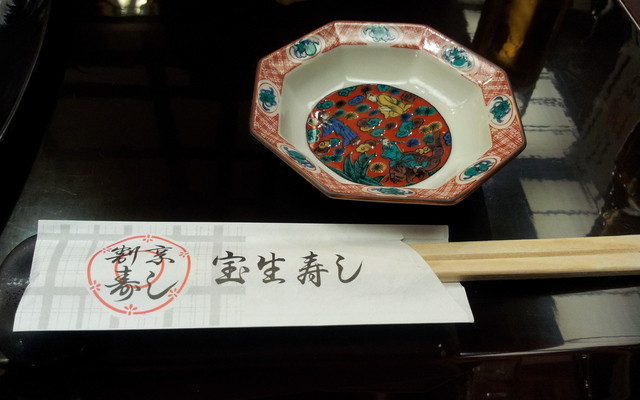 割烹
寿し
宝生寿し